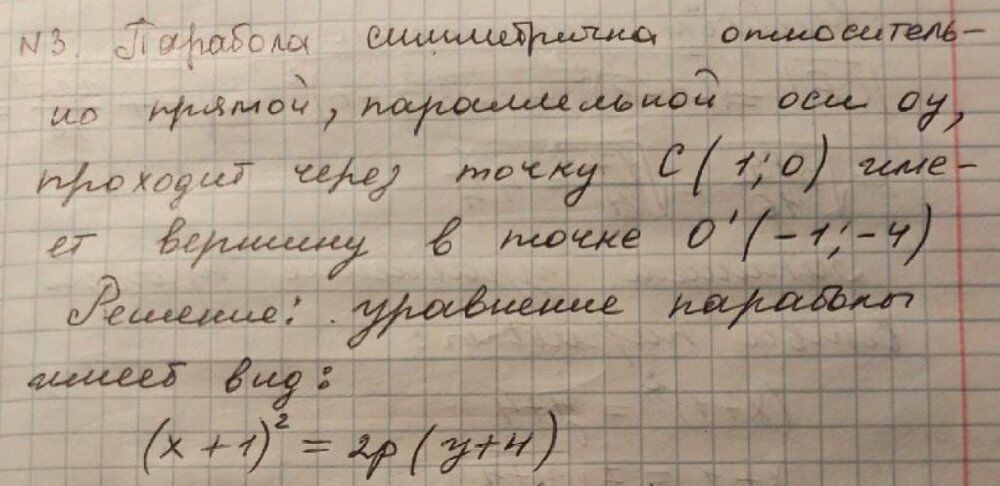 N3. Парабола симметрична относитель-
но прямой, параллельной оси ОУ,
проходит через точку С(1;0) име-
ет вершину в точке О'(-1;-4)
Решение: уравнение параболы
имеет вид:
(x+1)² = 2p(y+4)